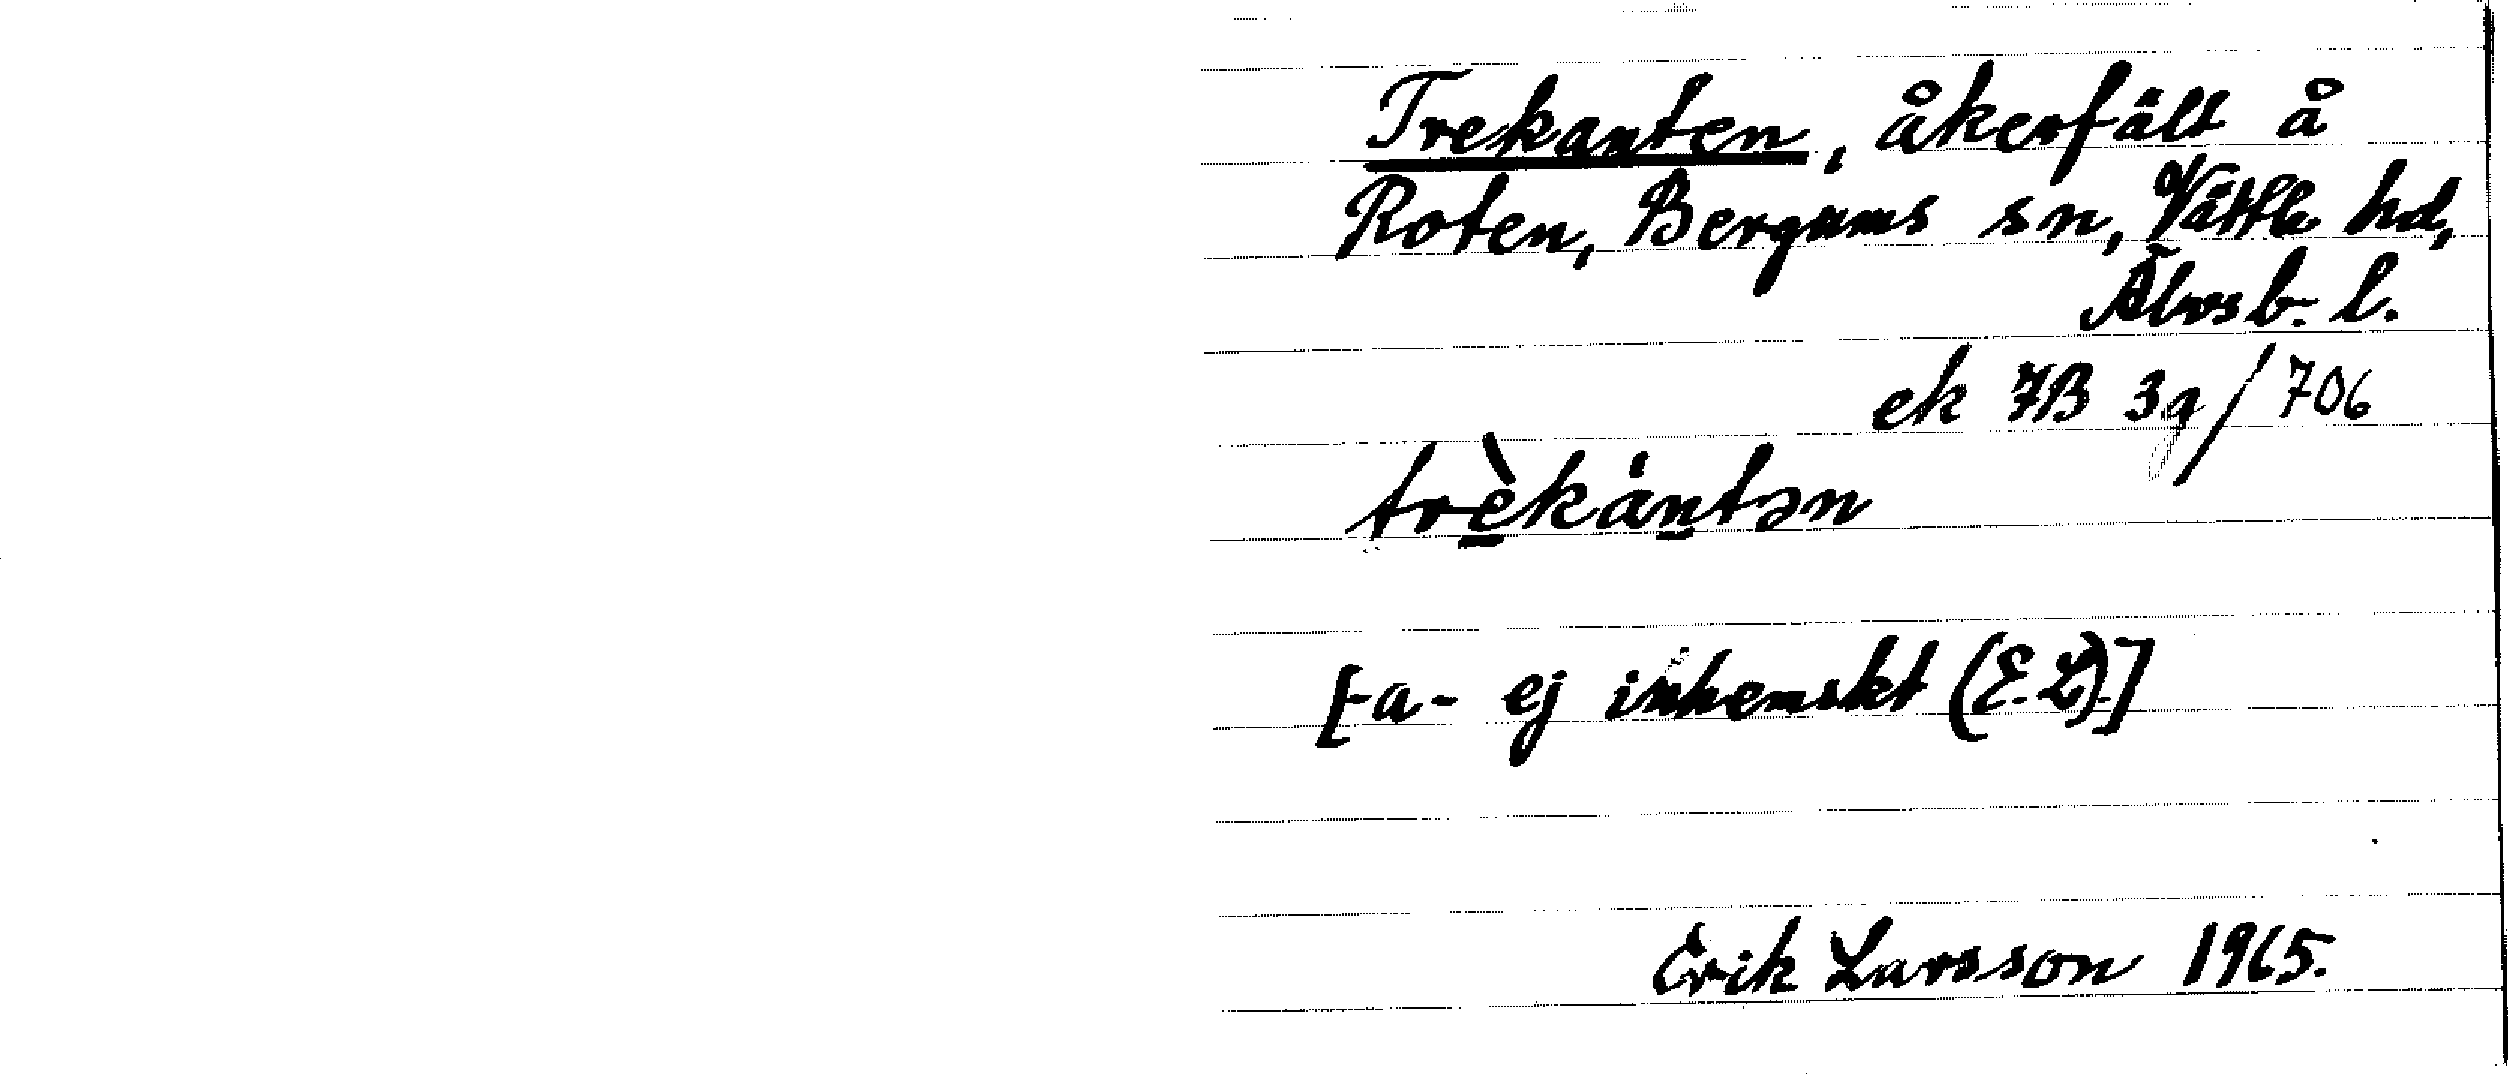 Trekanten, åkerfält å
Roten, Bergums sn, Vättle hd,
Älvsb. l.
ek 7B 3g/706
trèkántən
[-a- ej inhemskt (E.L).]
Erik Larsson 1965.